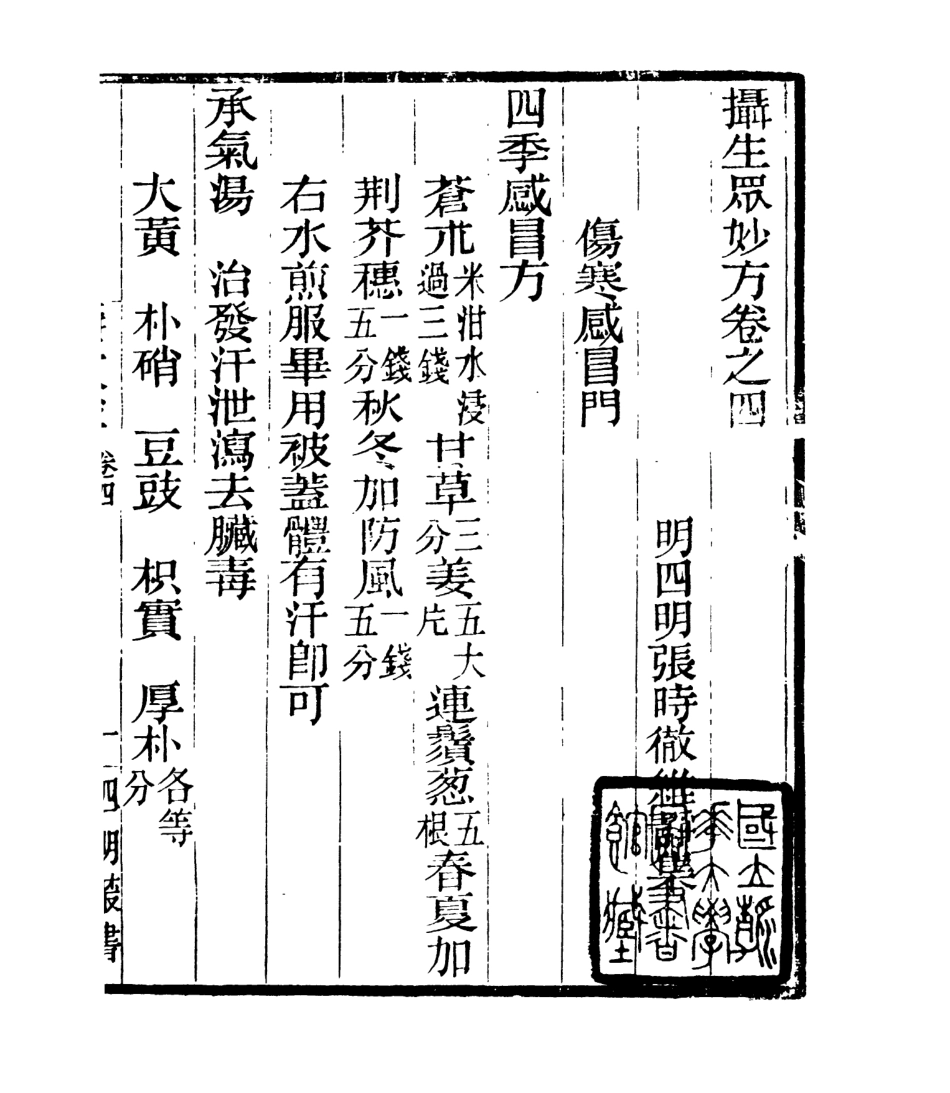 攝生眾妙方卷之四
明四明張時徹維靜集
傷寒感冒門
四季感冒方
蒼朮米泔水浸過三錢 甘草三分 姜五大片 連鬚葱五根 春夏加
荆芥穗一錢五分 秋冬加防風一錢五分
右水煎服畢用被蓋體有汗卽可
承氣湯 治發汗泄瀉去臟毒
大黃 朴硝 豆豉 枳實 厚朴各等分
卷四
一四明叢書
國立
大學
書
館藏